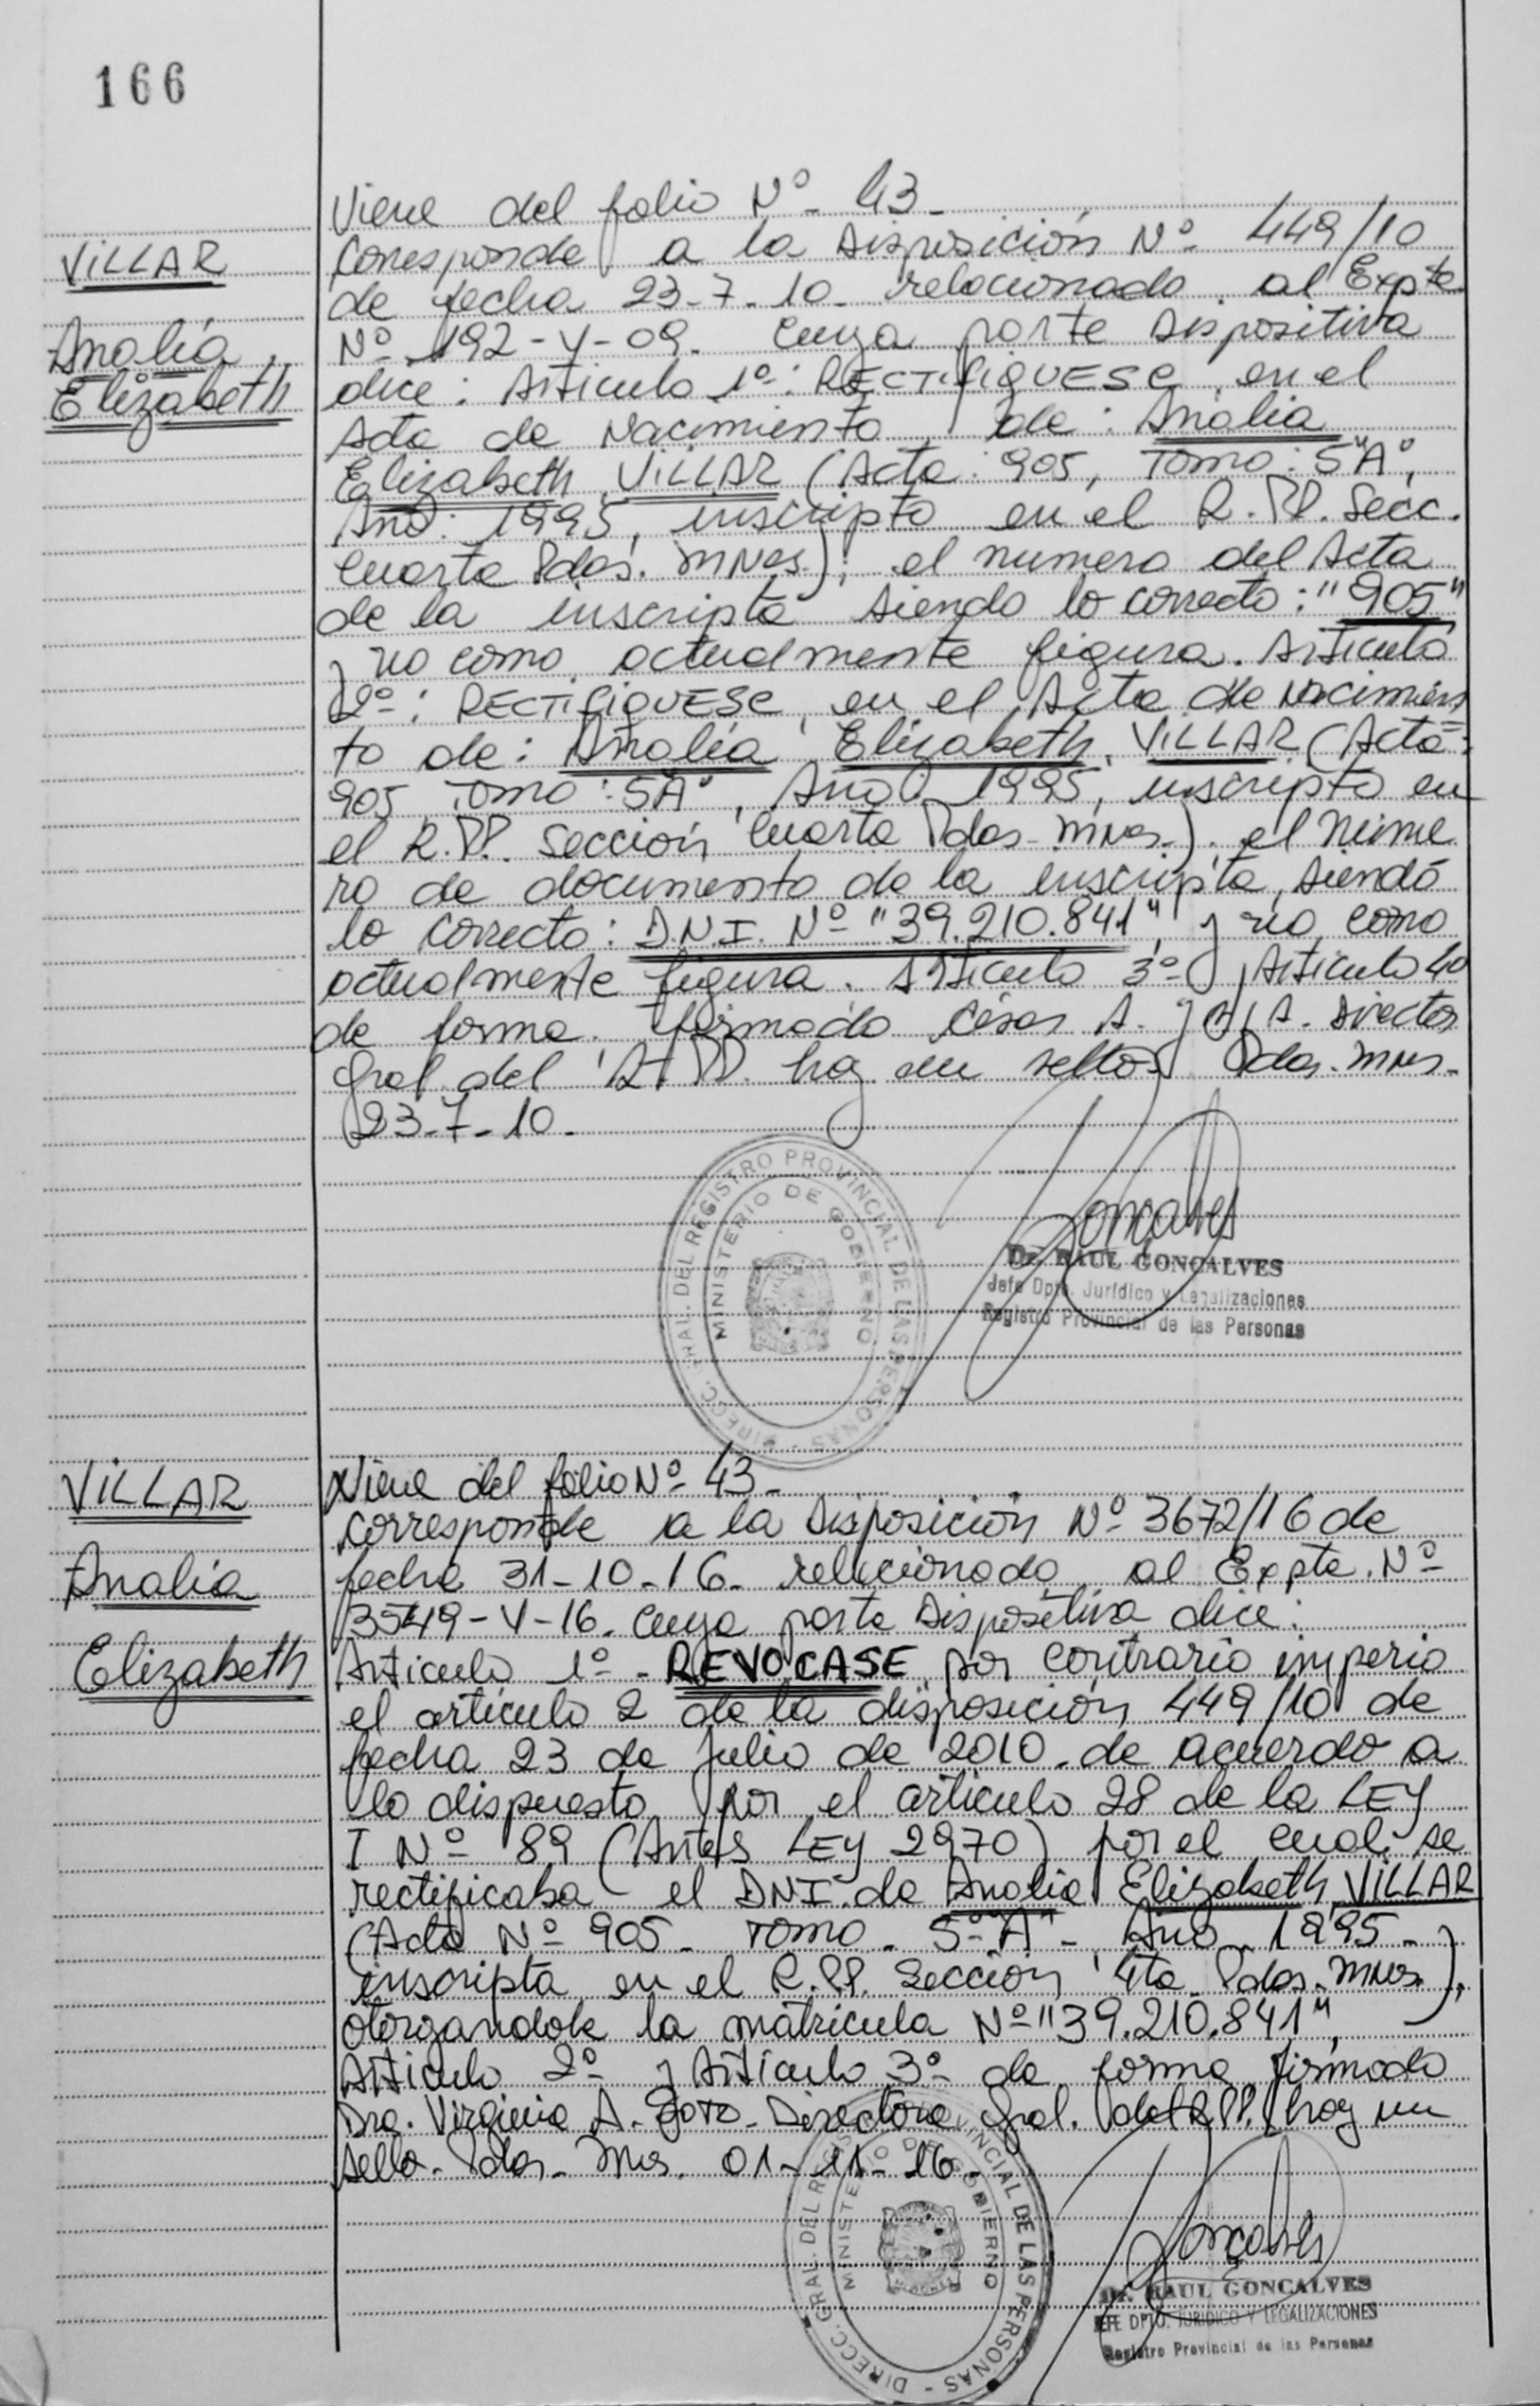 166
VILLAR
Analía
Elizabeth
Viene del folio Nº 43-
Corresponde a la Disposición Nº 449/10
de fecha 23-7-10- relacionado al Expte
Nº 192-V-09. Cuya parte dispositiva
dice: Artículo 1º: RECTIFIQUESE, en el
Acta de Nacimiento de: Analía
Elizabeth VILLAR (Acta: 905, Tomo: 5"Aº,
Año: 1995, inscripta en el R.PP. Secc.
Cuarta Pdas. Mnes.); el numero del Acta
de la inscripta siendo lo correcto: "905"
y no como actualmente figura. Artículo
2º: RECTIFIQUESE, en el Acta de Nacimien
to de: Analía Elizabeth VILLAR (Acta:
905 Tomo: 5Aº, Año: 1995, inscripta en
el R.PP. Sección Cuarta Pdas- Mnes.) el Núme
ro de documento de la inscripta, siendo
lo correcto: D.N.I. Nº "39.210.841", y no como
actualmente figura. Artículo 3º y Artículo 4º
de forma. firmado César A. Director
Gral del R.PP. hay un sello Pdas. Mnes.
23-7-10-
DIRECC. GRAL. DEL REGISTRO PROVINCIAL DE LAS PERSONAS -
MINISTERIO DE GOBIERNO
Goncalves
Dr. RAUL GONÇALVES
Jefe Dpto. Jurídico y Legalizaciones
Registro Provincial de las Personas
VILLAR
Analía
Elizabeth
Viene del folio Nº 43-
Corresponde a la Disposición Nº 3672/16 de
fecha 31-10-16- relacionado al Expte. Nº
3549-V-16. Cuya parte Dispositiva dice:
Artículo 1º - REVOCASE por contrario imperio
el artículo 2 de la disposición 449/10 de
fecha 23 de Julio de 2010. de acuerdo a
lo dispuesto por el artículo 28 de la LEY
I Nº 89 (Antes LEY 2970) por el cual se
rectificaba el DNI de Analía Elizabeth VILLAR
(Acta Nº 905- Tomo- 5º"A"- Año- 1995-
inscripta en el R.PP. Sección 4ta Pdas. Mnes.),
otorgandole la matrícula Nº "39.210.841",
Artículo 2º y Artículo 3º de forma firmado
Dra. Virginia A. Directora Gral. del R.PP. hay un
sello- Pdas- Mns. 01-11-16-
DIRECC. GRAL. DEL REGISTRO PROVINCIAL DE LAS PERSONAS -
MINISTERIO DE GOBIERNO
Goncalves
Dr. RAUL GONCALVES
JEFE DPTO. JURIDICO Y LEGALIZACIONES
Registro Provincial de las Personas